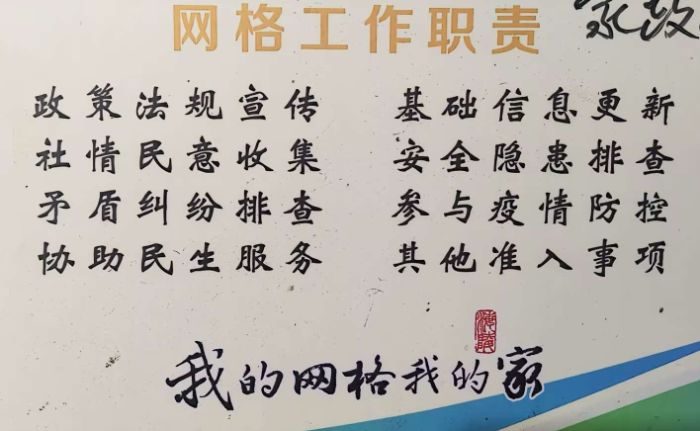 网格工作职责
政策法规宣传 基础信息更新
社情民意收集 安全隐患排查
矛盾纠纷排查 参与疫情防控
协助民生服务 其他准入事项
我的网格我的家